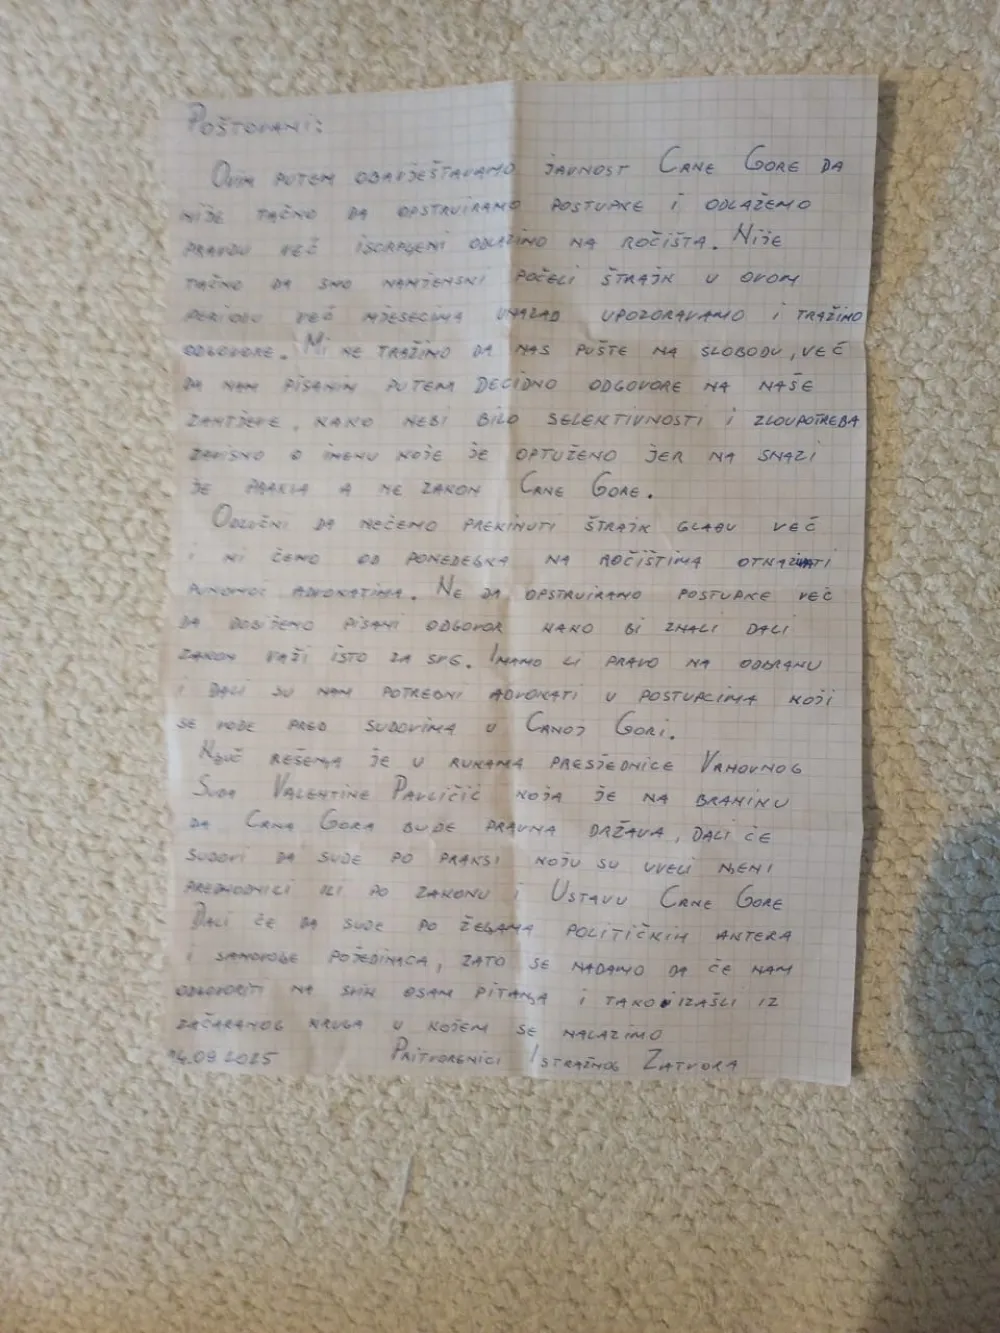 POŠTOVANI:
OVIM PUTEM OBAVJEŠTAVAMO JAVNOST CRNE GORE DA
NIJE TAČNO DA OPSTRUIRAMO POSTUPKE I ODLAŽEMO
PRAVDU VEĆ ISCRPLJENI ODLAZIMO NA ROČIŠTA. NIJE
TAČNO DA SMO NAMJENSKI POČELI ŠTRAJK U OVOM
PERIODU VEĆ MJESECIMA UNAZAD UPOZORAVAMO I TRAŽIMO
ODGOVORE. MI NE TRAŽIMO DA NAS PUŠTE NA SLOBODU, VEĆ
DA NAM PISANIM PUTEM DECIDNO ODGOVORE NA NAŠE
ZAHTJEVE, KAKO NEBI BILO SELEKTIVNOSTI I ZLOUPOTREBA
ZAVISNO O IMENU KOJE JE OPTUŽENO JER NA SNAZI
JE PRAKSA A NE ZAKON CRNE GORE.
ODLUČNI DA NEĆEMO PREKINUTI ŠTRAJK GLAĐU VEĆ
I MI ĆEMO OD PONEDELJKA NA ROČIŠTIMA OTKAZIVATI
PUNOMOĆ ADVOKATIMA. NE DA OPSTRUIRAMO POSTUPKE VEĆ
DA DOBIJEMO PISANI ODGOVOR KAKO BI ZNALI DALI
ZAKON VAŽI ISTO ZA SVE. IMAMO LI PRAVO NA ODBRANU
I DALI SU NAM POTREBNI ADVOKATI U POSTUPCIMA KOJI
SE VODE PRED SUDOVIMA U CRNOJ GORI.
KLJUČ REŠENJA JE U RUKAMA PRESJEDNICE VRHOVNOG
SUDA VALENTINE PAVLIČIĆ KOJA JE NA BRANIKU
DA CRNA GORA BUDE PRAVNA DRŽAVA, DALI ĆE
SUDOVI DA SUDE PO PRAKSI KOJU SU UVELI NJENI
PREDHODNICI ILI PO ZAKONU I USTAVU CRNE GORE
DALI ĆE DA SUDE PO ŽELJAMA POLITIČKIH AKTERA
I SAMOVOLJE POJEDINACA, ZATO SE NADAMO DA ĆE NAM
ODGOVORITI NA SVIH OSAM PITANJA I TAKO IZAŠLI IZ
ZAČARANOG KRUGA U KOJEM SE NALAZIMO
14.09 2025 PRITVORENICI ISTRAŽNOG ZATVORA